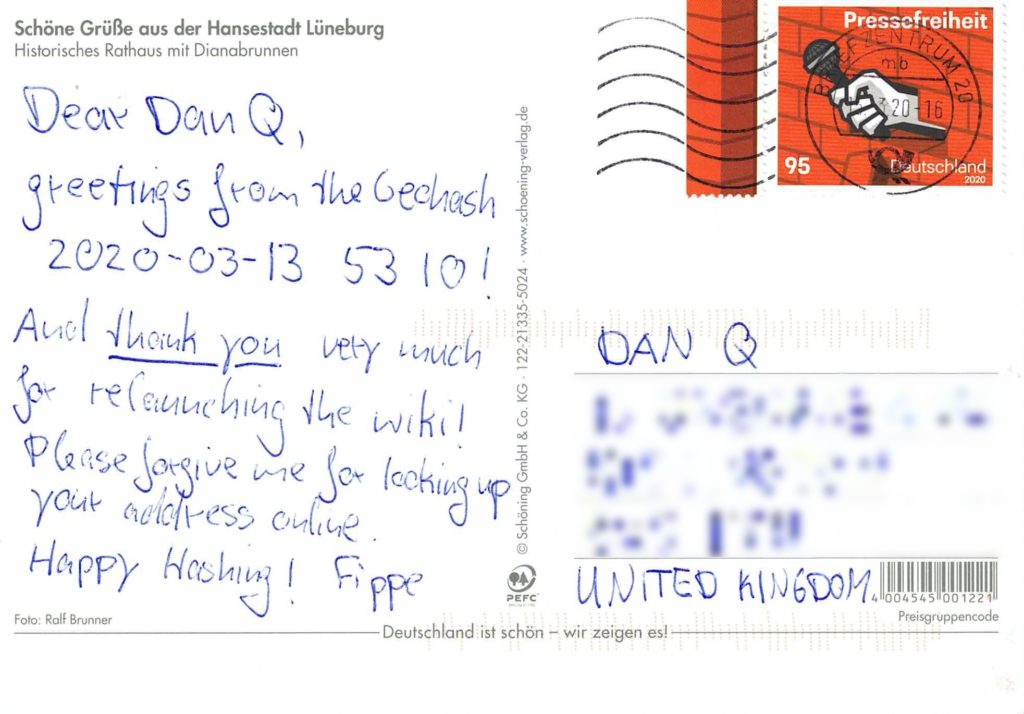 Schöne Grüße aus der Hansestadt Lüneburg
Historisches Rathaus mit Dianabrunnen
Dear Dan Q,
greetings from the Geohash
2020-03-13 53 10!
And thank you very much
for relaunching the wiki!
Please forgive me for looking up
your address online.
Happy Hashing! Fippe
Foto: Ralf Brunner
© Schöning GmbH & Co. KG · 122-21335-5024 · www.schoening-verlag.de
PEFC
Pressefreiheit
BRIEFZENTRUM 20
mb
3.20-16
95
Deutschland
2020
DAN Q
UNITED KINGDOM
4 004545 001221
Preisgruppencode
Deutschland ist schön – wir zeigen es!